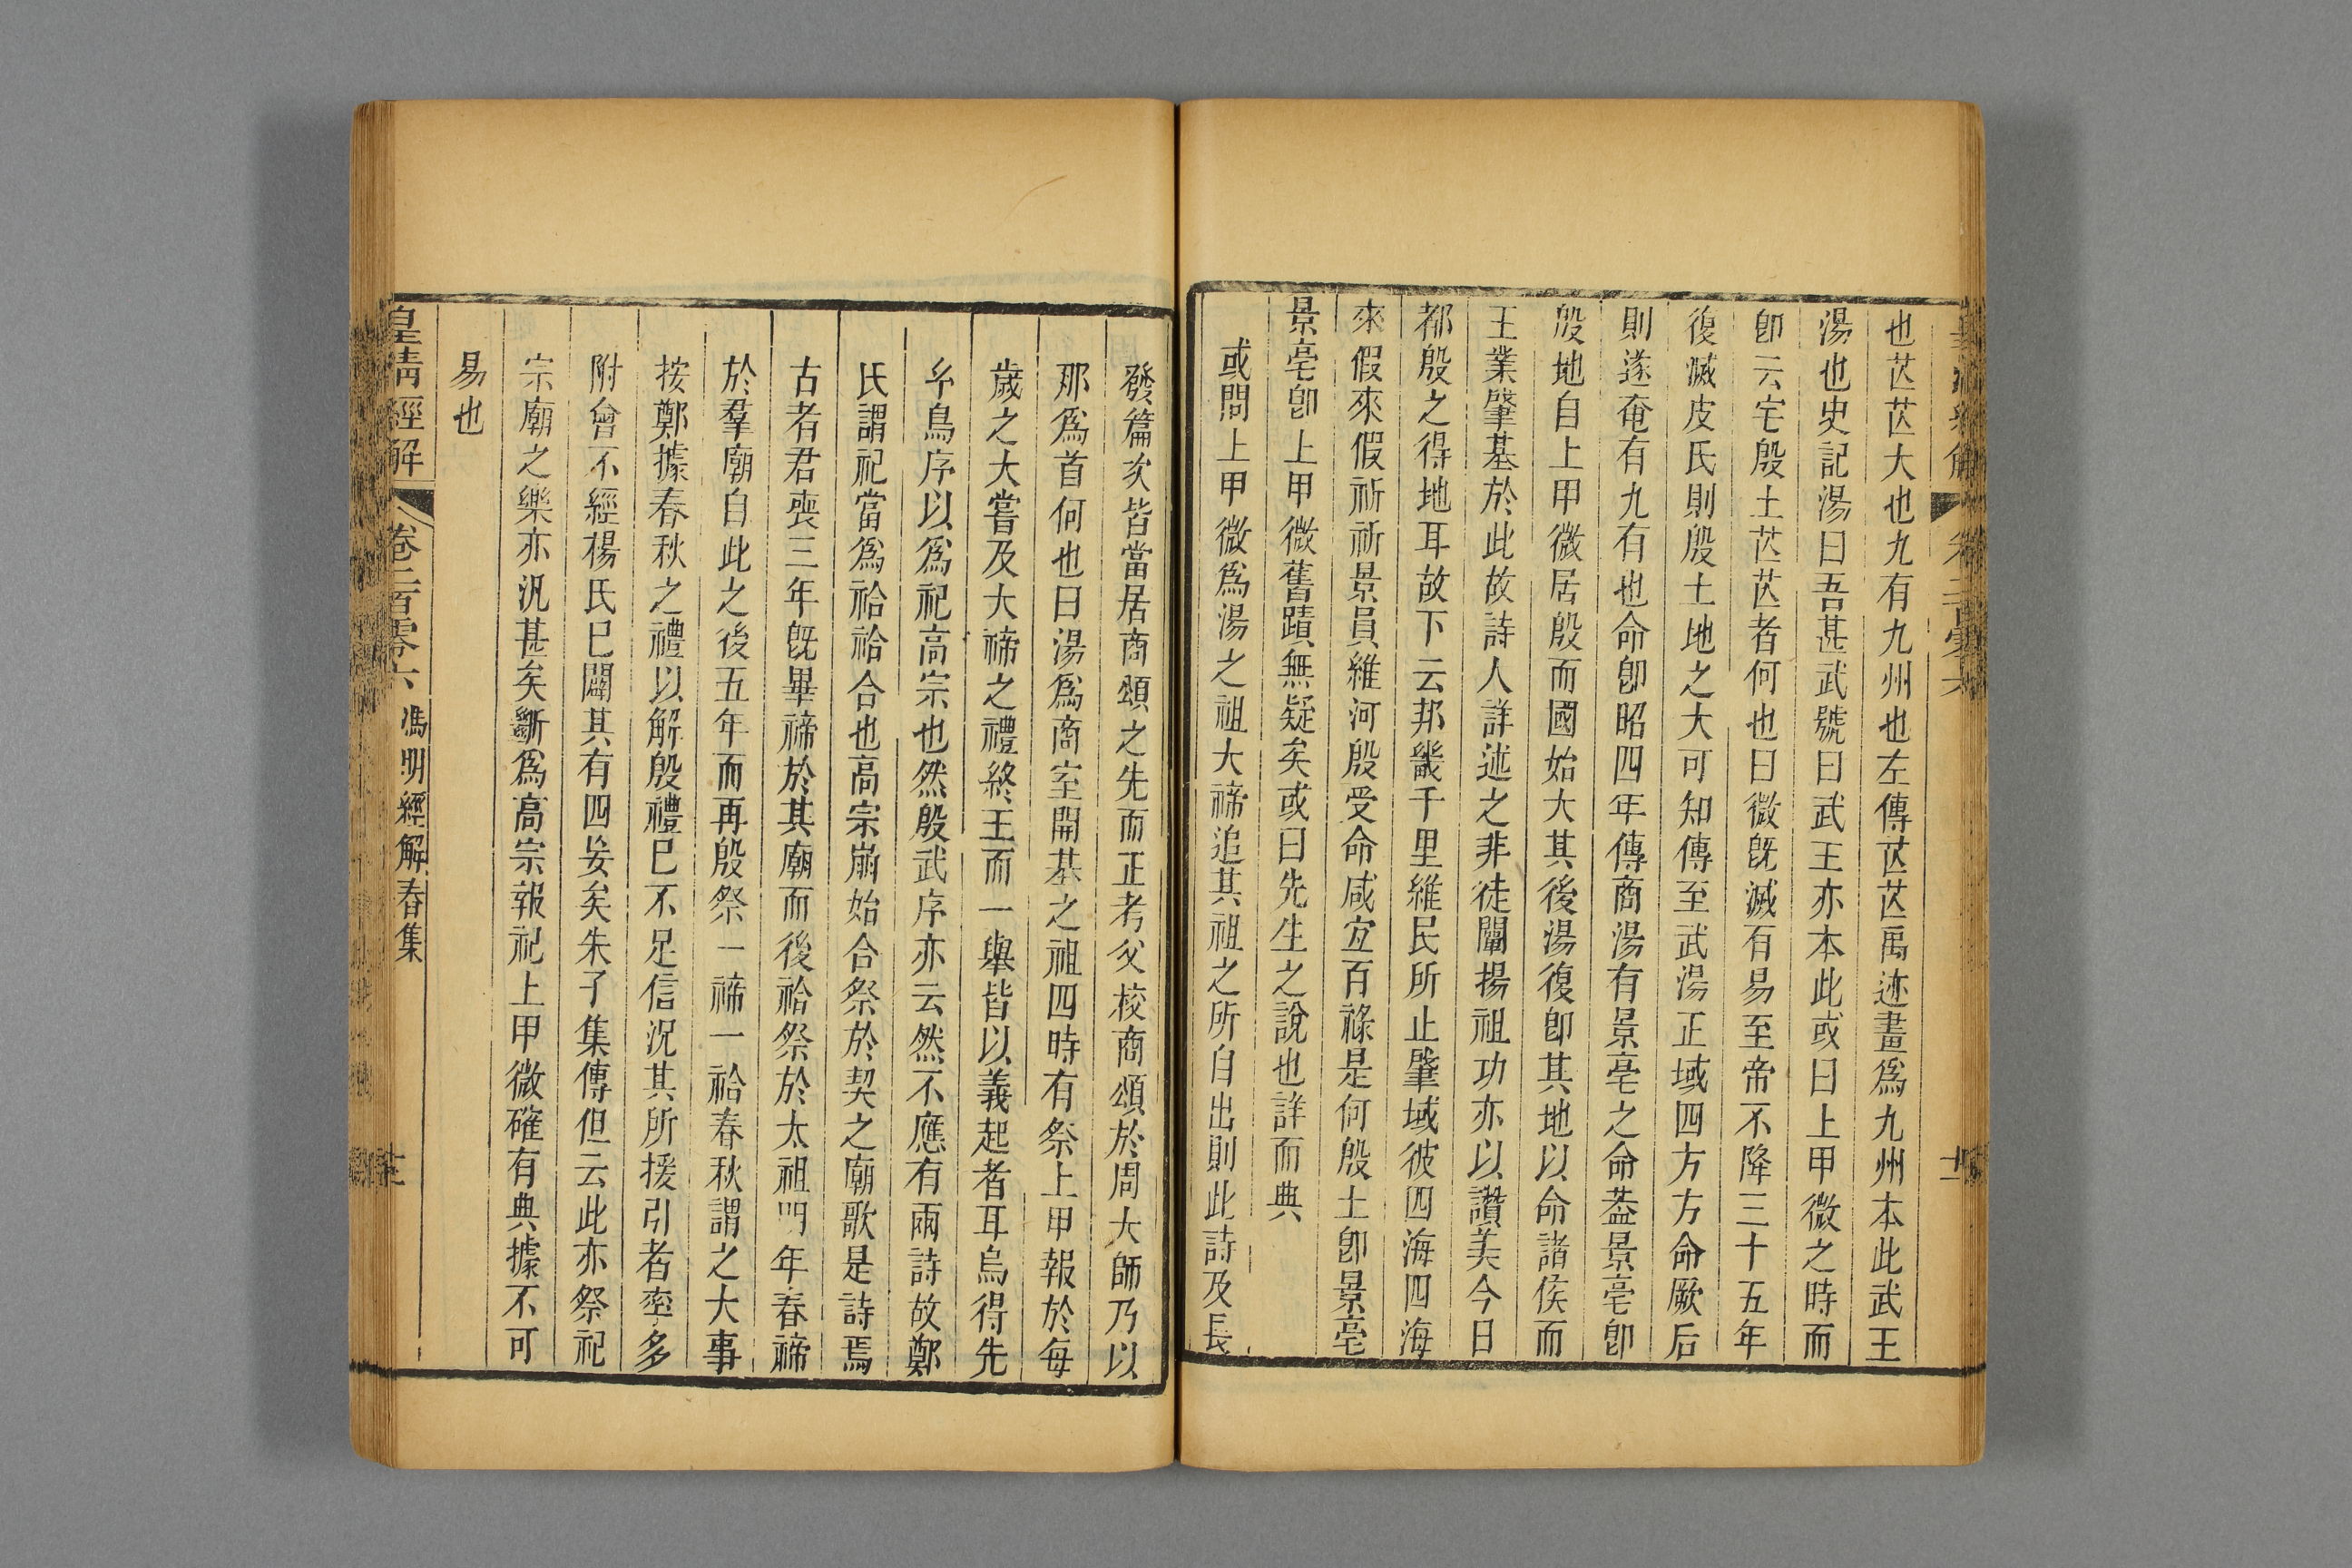 也芒芒大也九有九州也左傳芒芒禹迹畫爲九州本此武王
湯也史記湯曰吾甚武號曰武王亦本此或曰上甲微之時而
卽云宅殷土芒芒者何也曰微旣滅有易至帝不降三十五年
復滅皮氏則殷土地之大可知傳至武湯正域四方方命厥后
則遂奄有九有也命卽昭四年傳商湯有景亳之命葢景亳卽
殷地自上甲微居殷而國始大其後湯復卽其地以命諸侯而
王業肇基於此故詩人詳述之非徒闡揚祖功亦以讚美今日
都殷之得地耳故下云邦畿千里維民所止肇域彼四海四海
來假來假祈祈景員維河殷受命咸宜百祿是何殷土卽景亳
景亳卽上甲微舊蹟無疑矣或曰先生之說也詳而典
或問上甲微爲湯之祖大禘追其祖之所自出則此詩及長
發篇次皆當居商頌之先而正考父校商頌於周大師乃以
那爲首何也曰湯爲商室開基之祖四時有祭上甲報於每
歲之大嘗及大禘之禮終王而一舉皆以義起者耳烏得先
兮鳥序以爲祀高宗也然殷武序亦云然不應有兩詩故鄭
氏謂祀當爲祫祫合也高宗崩始合祭於契之廟歌是詩焉
古者君喪三年旣畢禘於其廟而後祫祭於太祖明年春禘
於羣廟自此之後五年而再殷祭一禘一祫春秋謂之大事
按鄭據春秋之禮以解殷禮已不足信況其所援引者率多
附會不經楊氏已闢其有四妄矣朱子集傳但云此亦祭祀
宗廟之樂亦汎甚矣斷爲高宗報祀上甲微確有典據不可
易也
皇清經解 卷二百零六 馮明經解舂集 十三